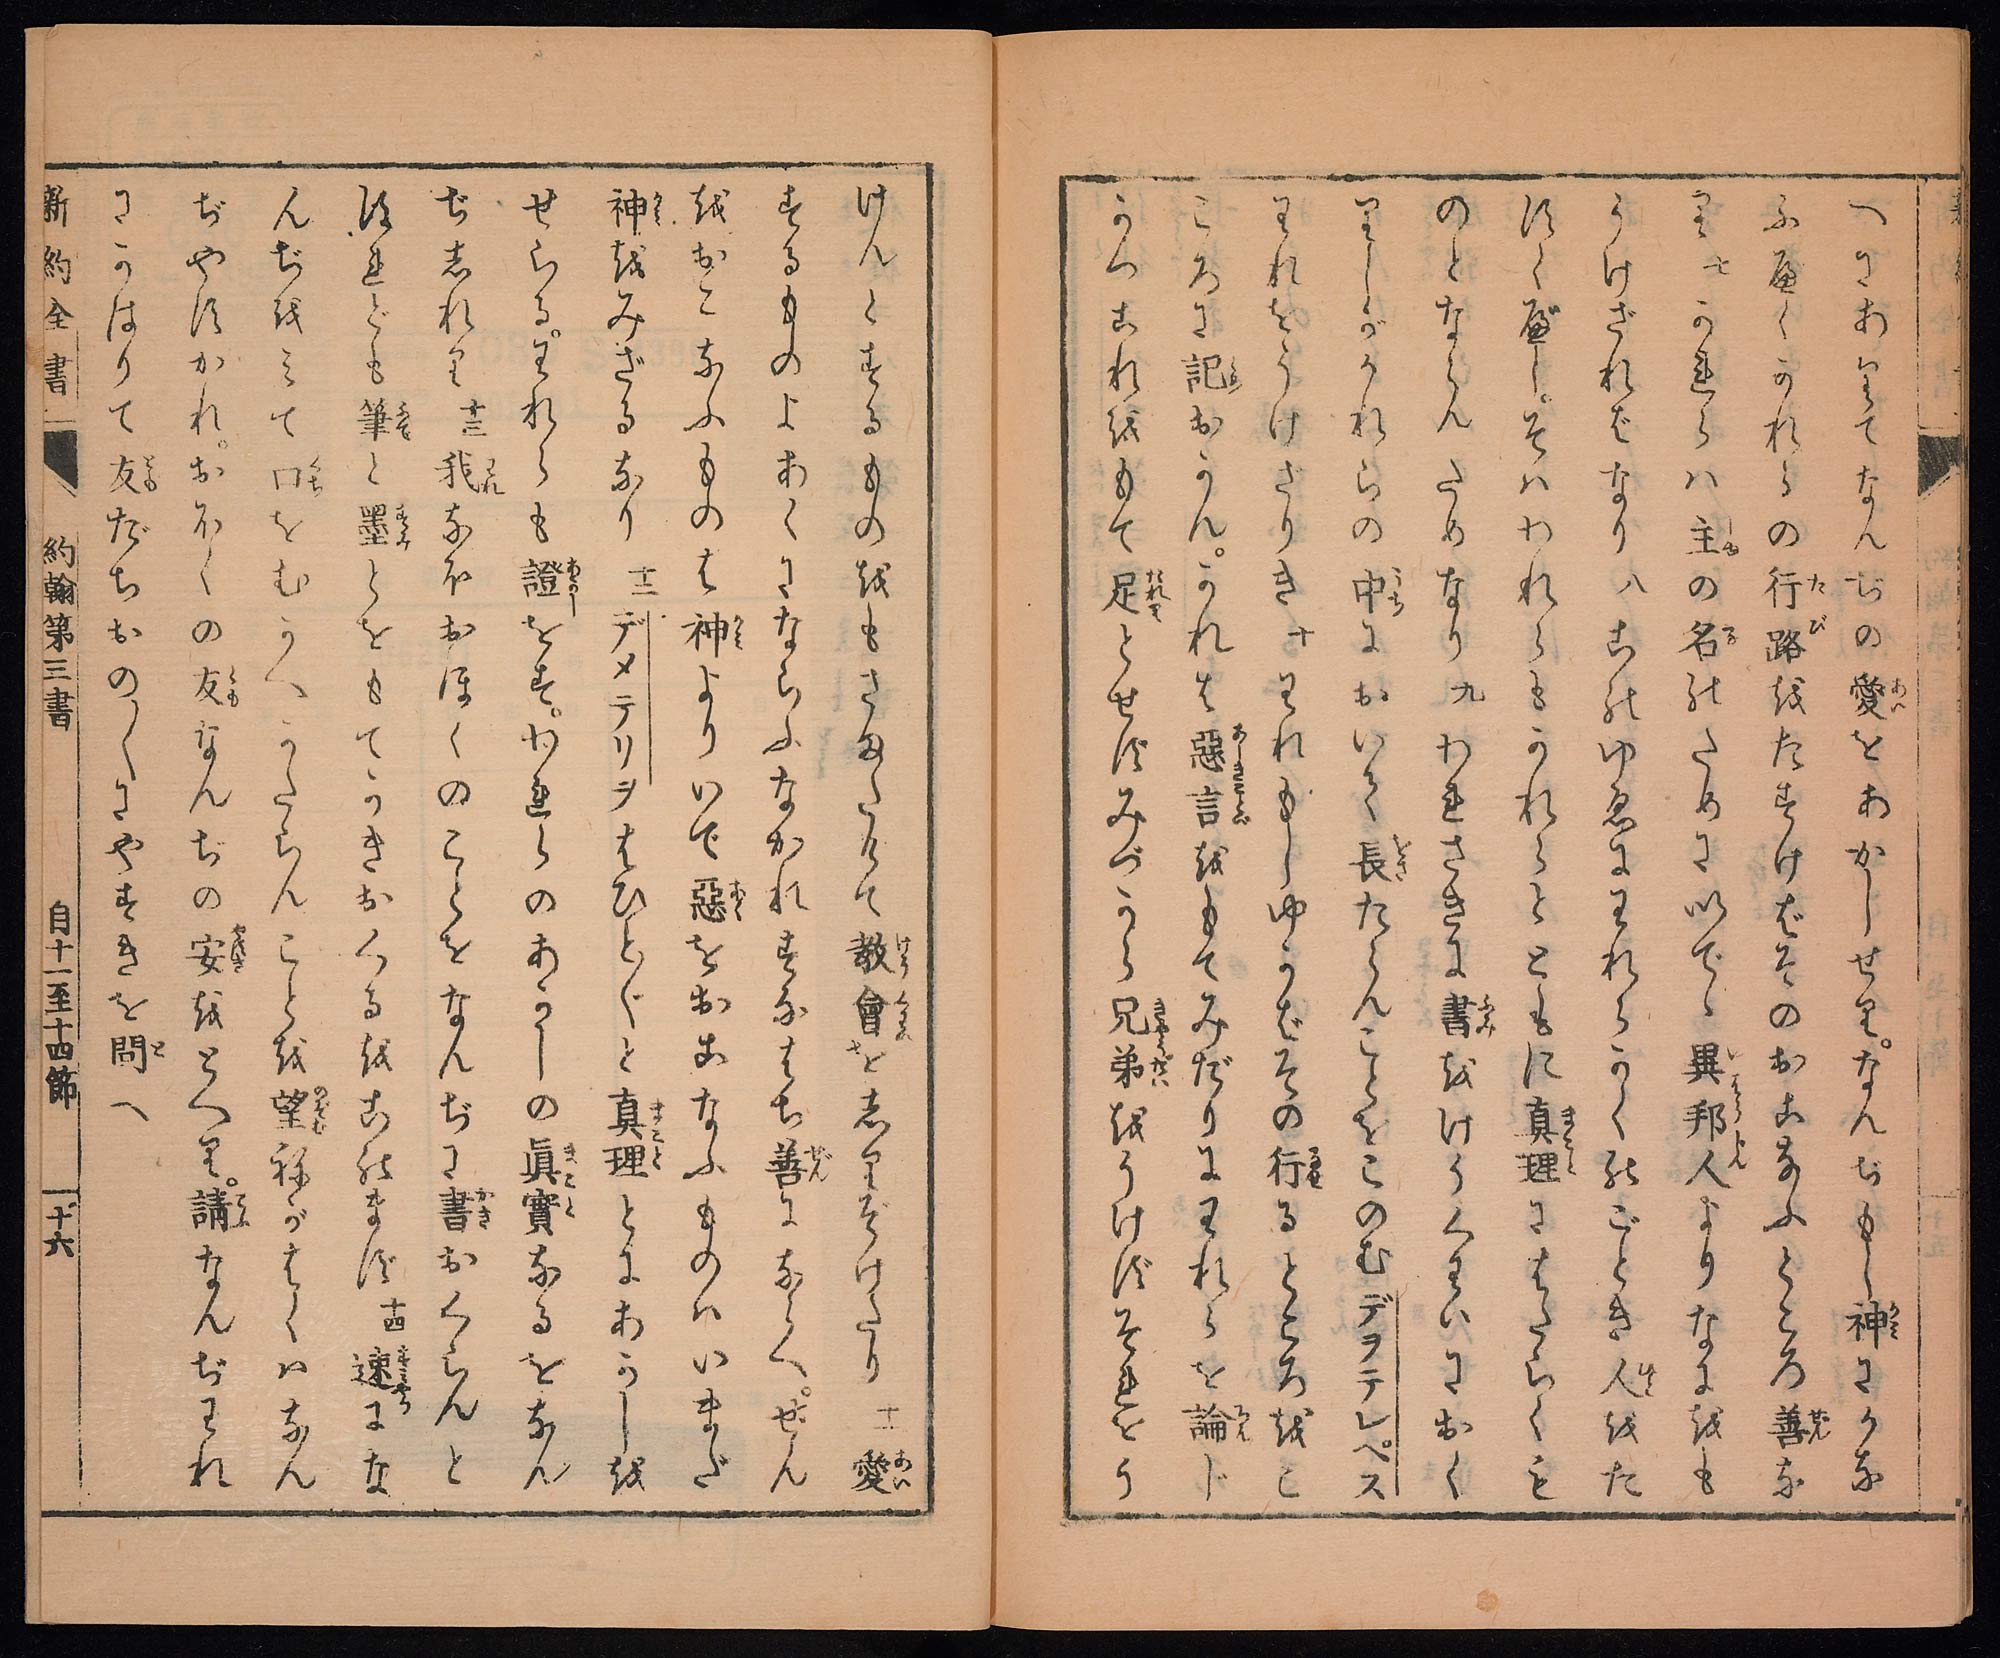 へにありてなんぢの愛をあかしせり。なんぢもし神にかな
ふべくかれらの行路をたすけばそのおこなふところ善な
り 七 かれらハ主の名のために以でゝ異邦人よりなにをも
うけざればなり 八 このゆゑにわれらかくのごとき人をた
すくべし。そハわれらもかれらとともに真理にはたらくも
のとならんためなり 九 われさきに書をけうくわいにおく
りしがかれらの中において長たらんことをこのむデヲテレペス
われをうけざりき 十 われもしゆかばその行るところをこ
ころに記おかん。かれは惡言をもてみだりにわれらを論ド
かつこれをもて足とせずみづから兄弟をうけずそれをう
けんとするものをもさまたげて教會を志りぞけたり 十一 愛
するものよあくにならふなかれすなはち善にならへ。ぜん
をおこなふものは神よりいで惡をおこなふものハいまだ
神をみざるなり 十二 デメテリヲはひとびと真理とにあかしを
せらる。われらも證をす。われらのあかしの眞實なるをなん
ぢ志れり 十三 我なほおほくのことをなんぢに書おくらんと
ほれども筆と墨とをもてかきおくるをこのまず 十四 速にな
んぢをみて口をむかへかたらんことを望ねがはくハなん
ぢやすかれ。おほくの友なんぢの安をとへり。請なんぢわれ
にかはりて友だちおの〱にやすきを問へ
新約全書 約翰第三書 自十一至十四節 十六